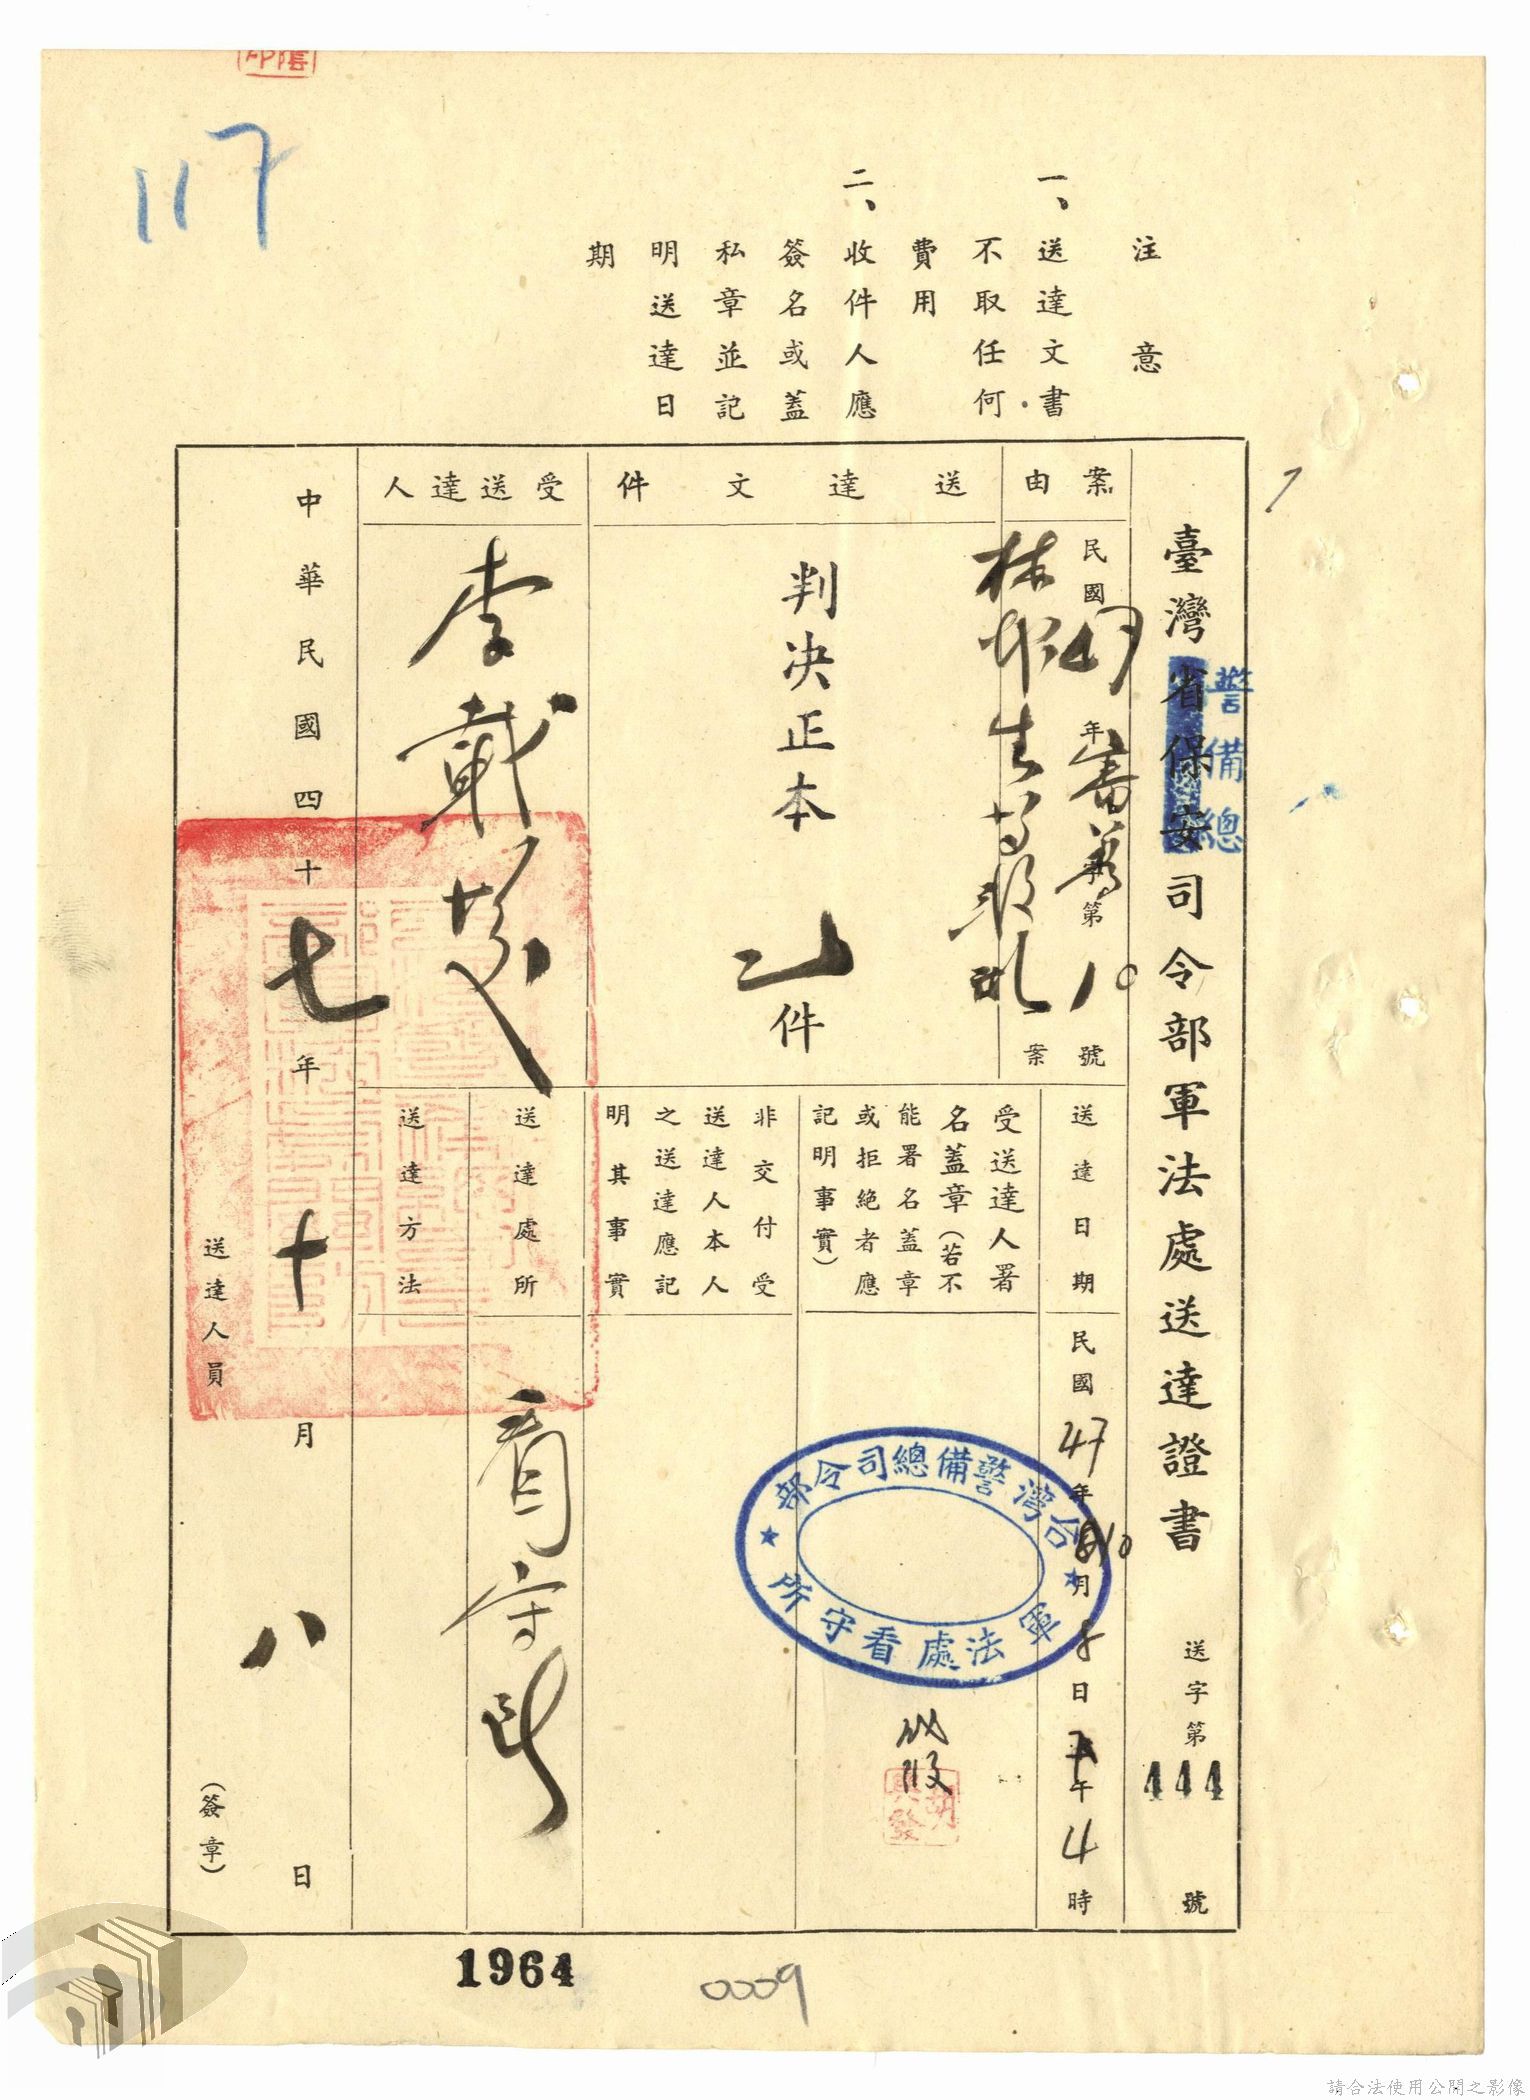 117
注意
一、送達文書
不取任何
費用
二、收件人應
簽名或蓋
私章並記
明送達日
期
臺灣省保安司令部軍法處送達證書 送字第444號
警備總
案由
民國47年審 第10號
林 生 案
送達文件
判决正本 件
受送達人
李載
送達日期
民國47年10月8日 午4時
受送達人署
名蓋章(若不
能署名蓋章
或拒絕者應
記明事實)
台灣警備總司令部
軍法處看守所
非交付受
送達人本人
之送達應記
明其事實
送達處所
看守所
送達方法
中華民國四十七年十月八日
送達人員 (簽章)
1964
0009
請合法使用公開之影像